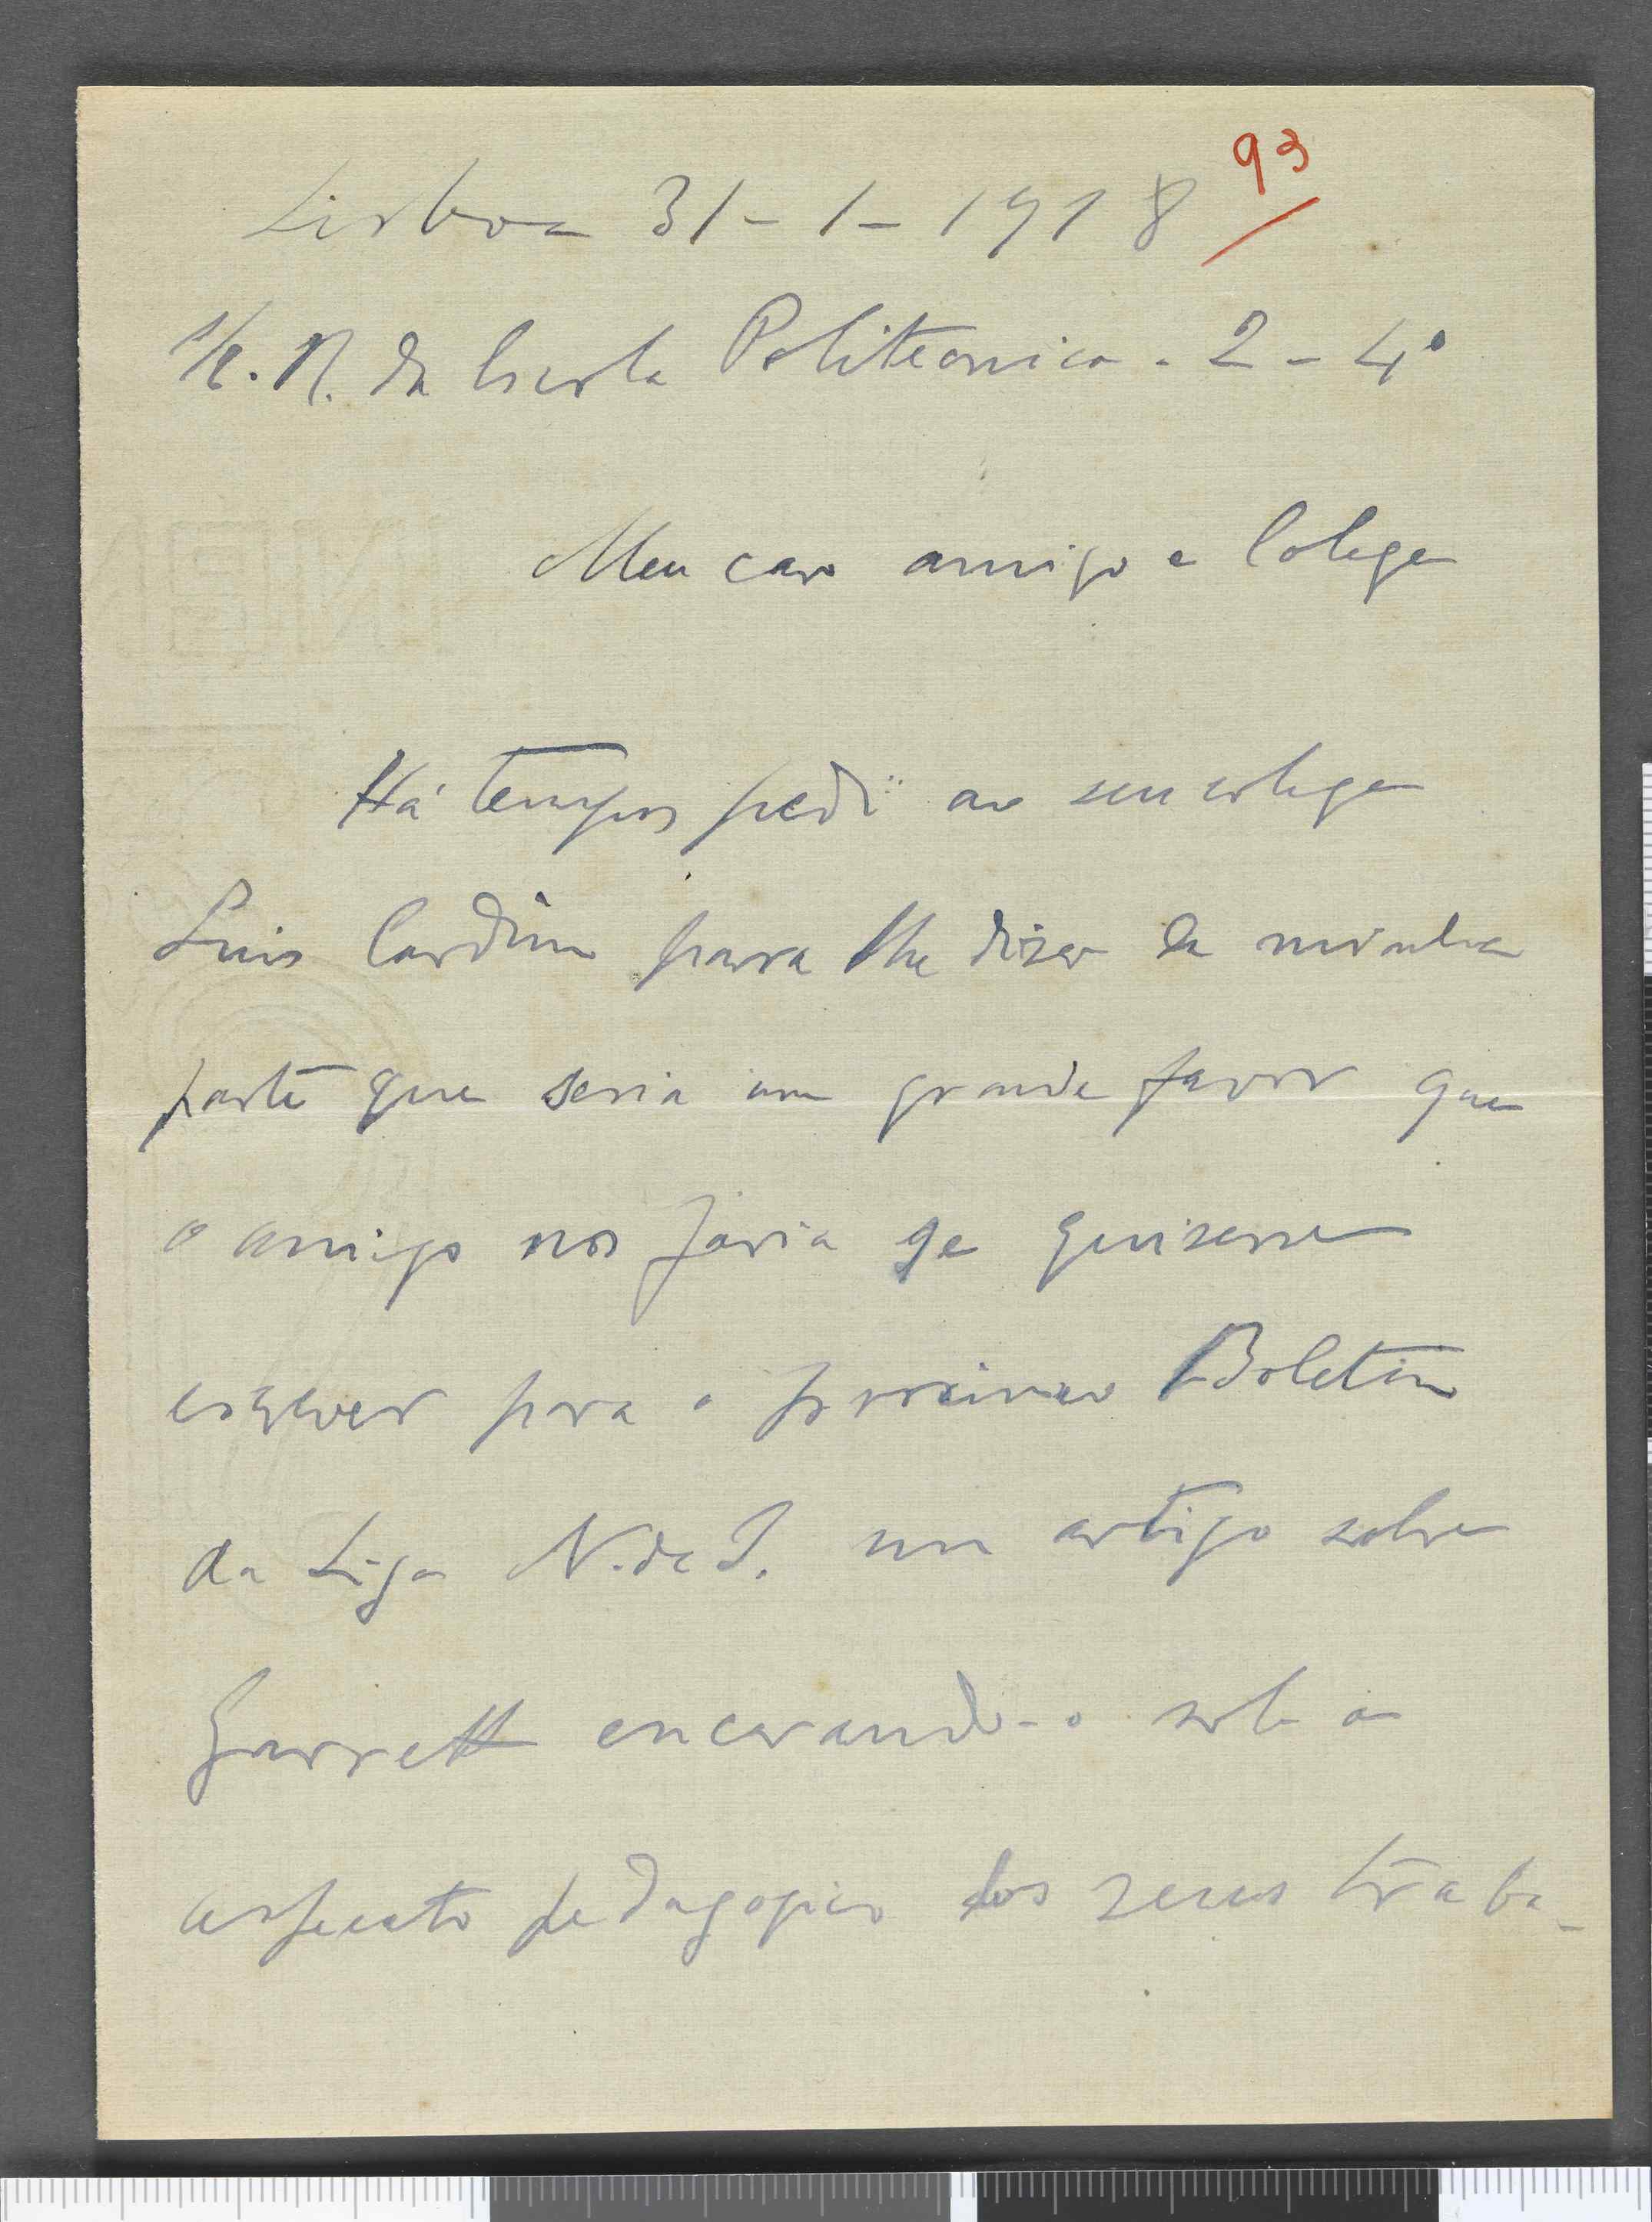 93
Lisboa 31-1-1918
s/c. R. da Escola Politecnica. 2-4º
Meu caro amigo e Colega
Há tempos pedi ao seu colega
Luis Cardim para lhe dizer da minha
parte que seria um grande favor que
o amigo nos faria se quisesse
escrever para o proximo Boletim
da Liga N. de I. um artigo sobre
Garrett encarando-o sob o
aspecto pedagogico dos seus traba-